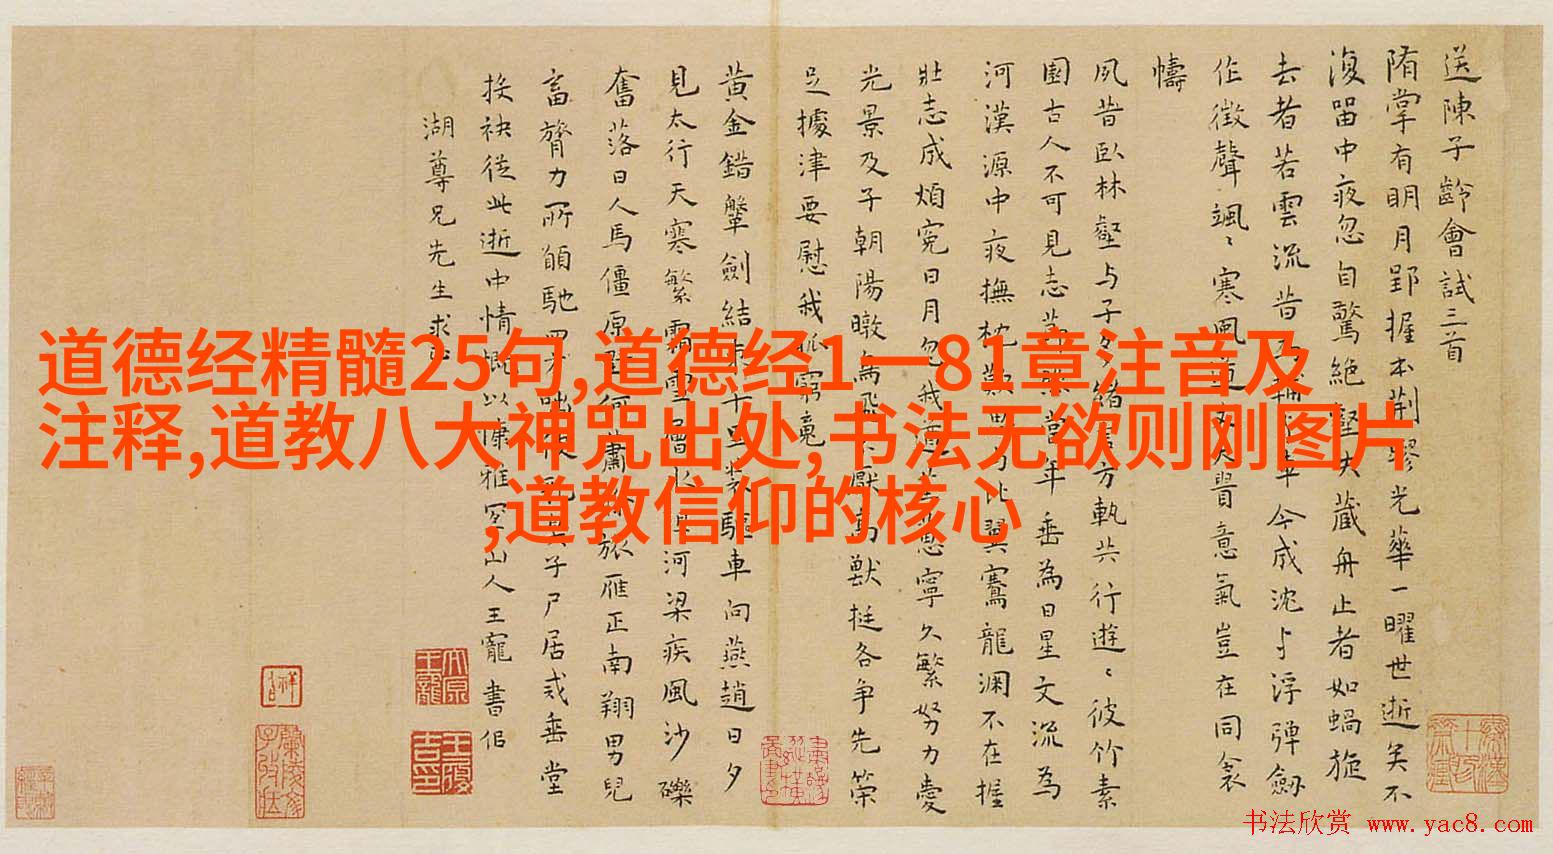 道德经精髓25句,道德经1一81章注音及
注释,道教八大神咒出处,书法无欲则刚图片
,道教信仰的核心
送陳子齡會試三首
隋掌有明月郢握本荊璆光華一曜世逝矣不
復留中夜忽自驚絕壑夫藏舟止者如蝸旋
去者若雲流昔今成沈与浮彈劔
作徵聲颯〻寒風道意氣豈在同衾
幬
夙昔臥林壑与子方執共行遊〻彼竹素
園古人不可見志當年垂為日星文流為
河漢源中夜撫枕歎比翼騫龍淵不在握
壯志成煩寃日月忽我寧久繁努力愛
光景及子朝陽暾無高獸挺各爭先榮
足據津要慰我孤窮
黃金錯鞶劍結束千里裝驅車向燕趙日夕
見太行天寒繁霜雪層冰河梁疾風沙礫
奮落日人馬僵原野何蕭條旅雁正南翔男兒
畜膂力所願馳四方子尸居或垂堂
接袂從此逝中情慨以慷雅宜山人王寵書佀
湖尊兄先生求正
书法欣赏 www.yac8.com